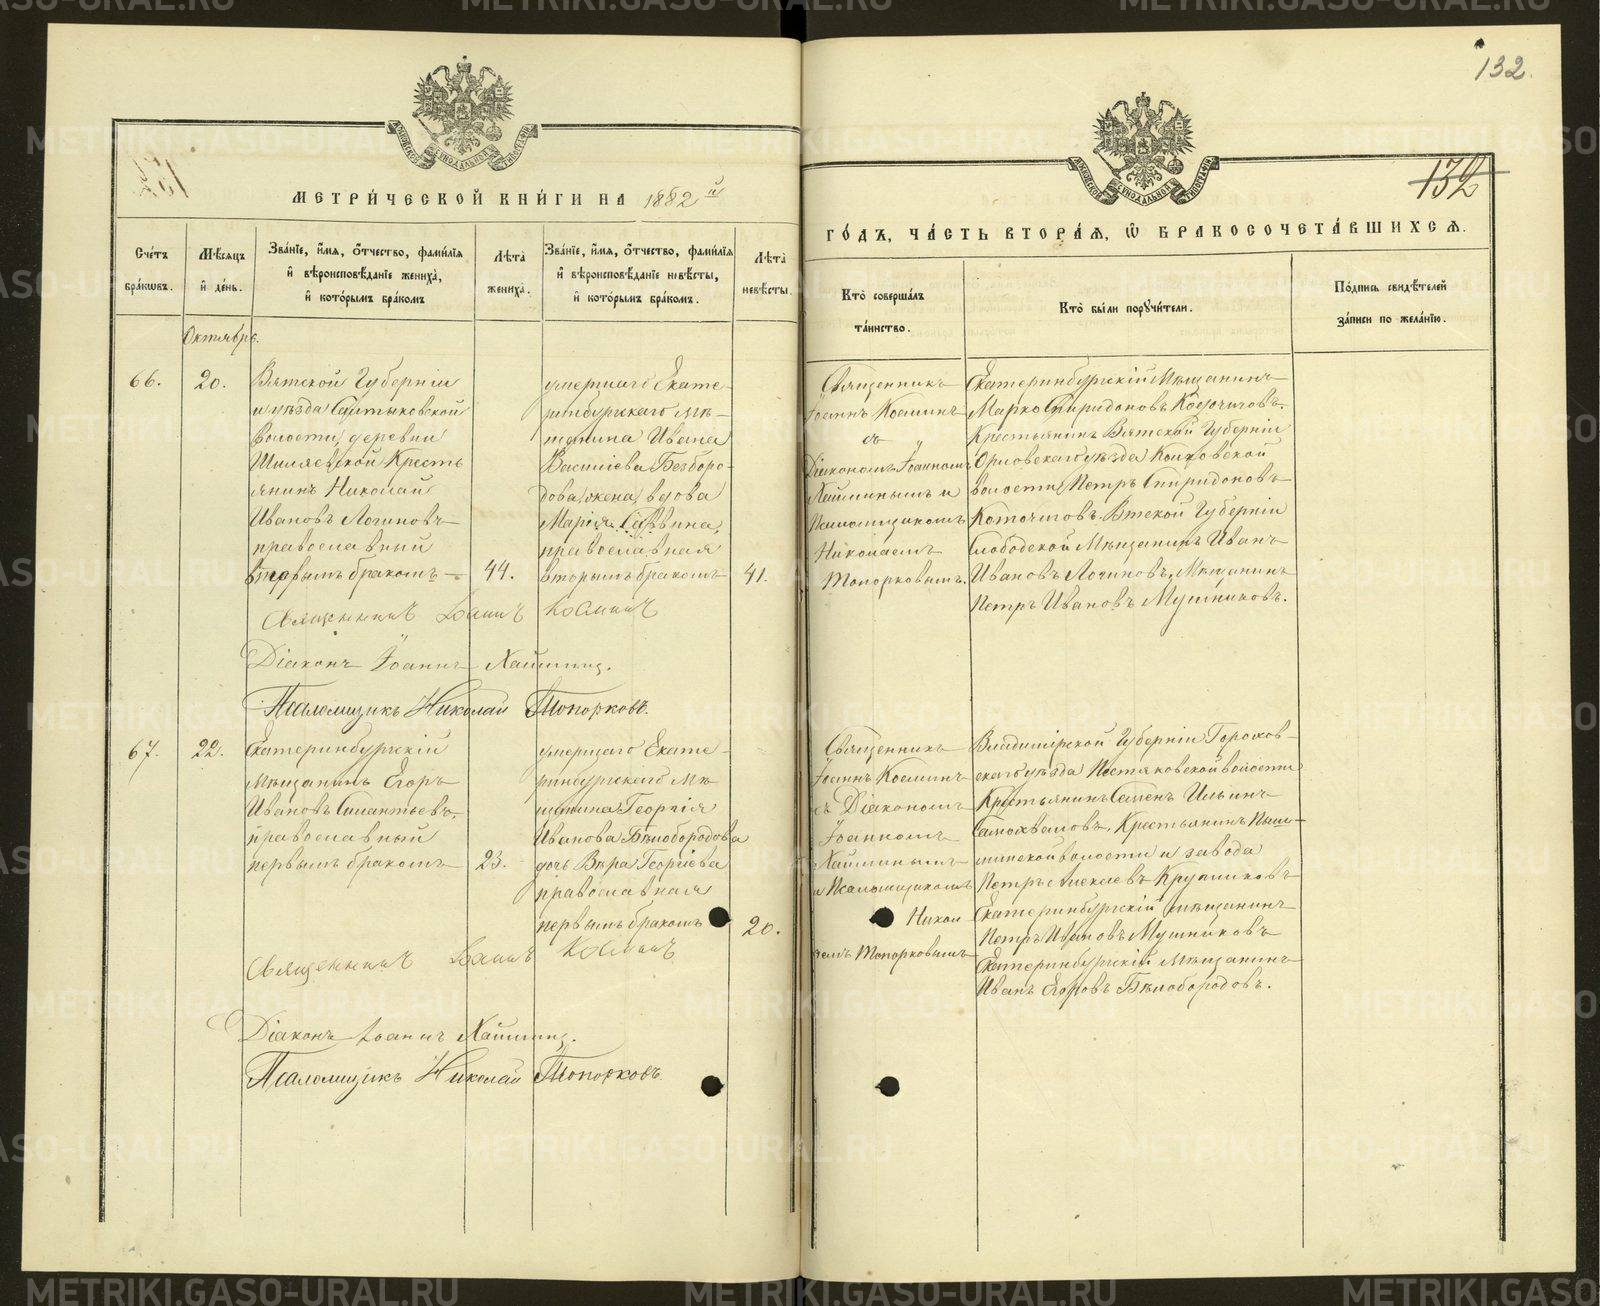 132.
132
МЕТРИ́ЧЕСКОЙ КНИ́ГИ НА 1882 й
ГО́ДЪ, ЧА́СТЬ ВТОРА́Я, Ѽ БРАКОСОЧЕТА́ВШИХСЯ.
Сче́тъ бра́кѡвъ.
Мѣ́сяцъ и҆ де́нь.
Зва́нїе, и҆́мя, о҆́тчество, фами́лїя и҆ вѣроисповѣ́данїе жениха̀, и҆ кото́рымъ бра́комъ
Лѣ́та жениха̀.
Зва́нїе, и҆́мя, о҆́тчество, фами́лїя и҆ вѣроисповѣ́данїе невѣ́сты, и҆ кото́рымъ бра́комъ.
Лѣ́та невѣ́сты.
Кто̀ соверша́лъ та́инство.
Кто̀ бы́ли поручи́тели.
По́дпись свидѣ́телей за́писи по жела́нїю.
Октябрь.
66.
20.
Вятской Губерніи
и уѣзда Салтыковской
волости, деревни
Шиляевской Кресть
янинъ Николай
Ивановъ Логиновъ
православный
вторымъ бракомъ
44.
умершаго Екате-
ринбургскаго мѣ-
щанина Ивана
Васильева Безборо-
дова жена, вдова
Марія Саввина,
православная
вторымъ бракомъ
41.
Священникъ
Іоаннъ Косминъ
съ
Діакономъ Іоанномъ
Хайминымъ и
Псаломщикомъ
Николаемъ
Топорковымъ.
Екатеринбургскій Мѣщанинъ
Марко Спиридоновъ
Крестьянинъ Вятской Губерніи
Орловскаго уѣзда
волости, Петръ Спиридоновъ
Вятской Губерніи
Слободской Мѣщанинъ Иванъ
Ивановъ Логиновъ, Мѣщанинъ
Петръ Ивановъ Мушниковъ.
Священникъ Іоаннъ Косминъ
Діаконъ Іоаннъ Хайминъ.
Псаломщикъ Николай Топорковъ.
67.
22.
Екатеринбургскій
Мѣщанинъ Егоръ
Ивановъ
православный
первымъ бракомъ
23.
умершаго Екате-
ринбургскаго Мѣ
щанина Георгія
Иванова Бѣлобородова
дочь Вѣра Георгіева
православная
первымъ бракомъ
20.
Священникъ
Іоаннъ Косминъ
съ Діакономъ
Іоанномъ
Хайминымъ
и Псаломщикомъ
Никол
аемъ Топорковымъ
Владимірской Губерніи Горохов-
скаго уѣзда волости
Крестьянинъ Семенъ Ильинъ
Самохваловъ, Крестьянинъ Пыш-
минской волости и завода
Петръ Алексѣевъ Крупниковъ
Екатеринбургскій мѣщанинъ
Петръ Ивановъ Мушниковъ
Екатеринбургскій Мѣщанинъ
Иванъ Егоровъ Бѣлобородовъ.
Священникъ Іоаннъ Косминъ
Діаконъ Іоаннъ Хайминъ.
Псаломщикъ Николай Топорковъ.
METRIKI.GASO-URAL.RU